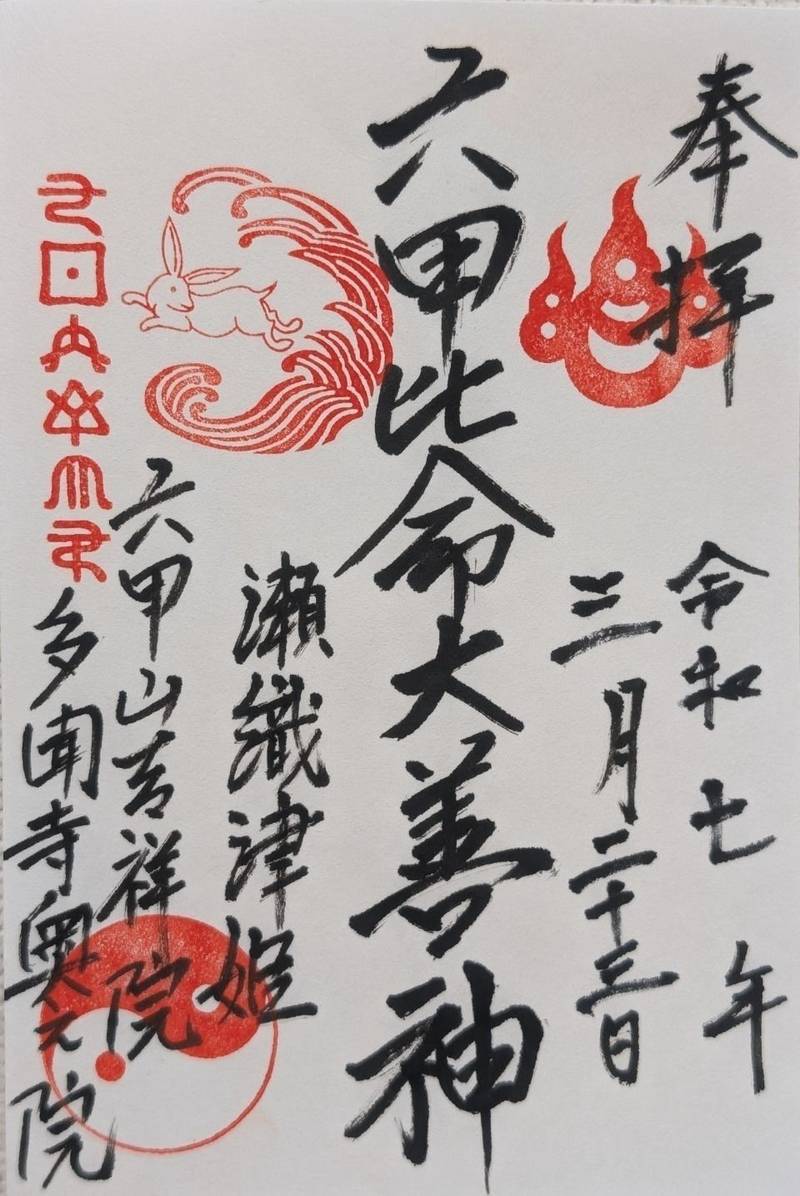 奉拝
令和七年
三月二十三日
六甲比命大善神
瀬織津姫
六甲山吉祥院
多聞寺奥之院